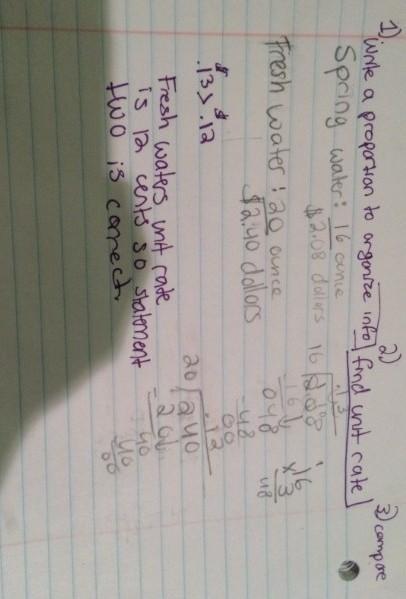 1) write a proportion to organize info
2) find unit rate
3) compare
Spring water: 16 ounce
$2.08 dollars
.13
16 2.08
-16
048
-48
00
16
x 3
48
Fresh water: 20 ounce
$2.40 dollars
.12
20 2.40
-20
40
-40
00
$.13 > $.12
Fresh waters unit rate
is 12 cents so statement
two is correct.